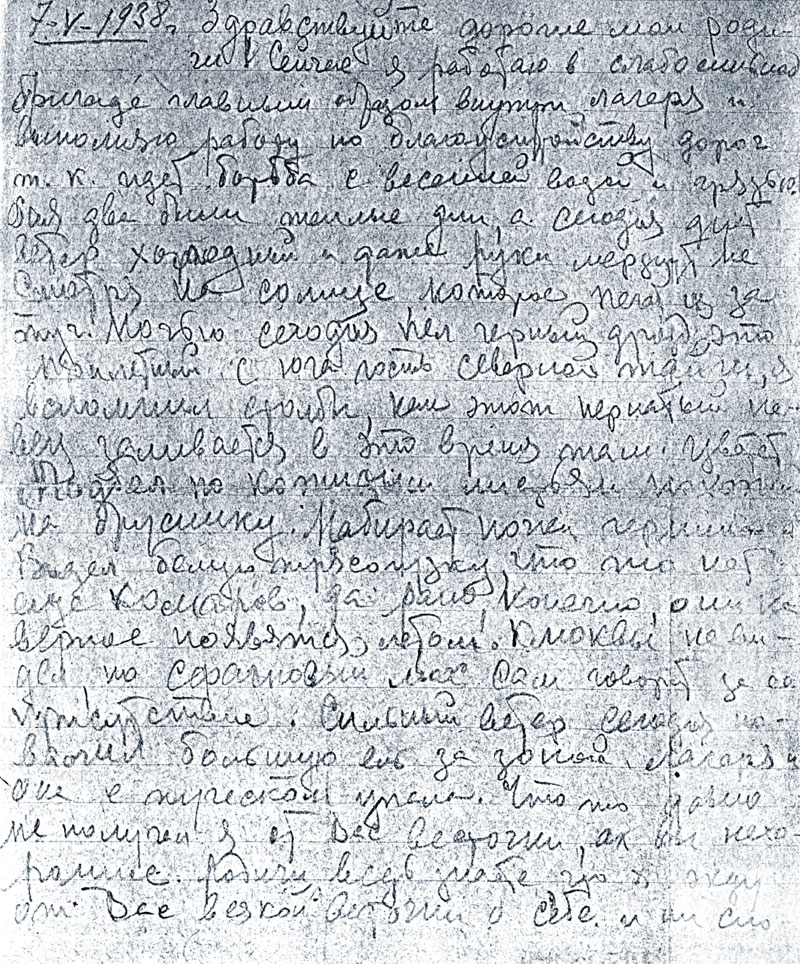 7-V-1938г. Здравствуйте дорогие мои роди-
чи! Сейчас я работаю в слабосильной
бригаде главным образом внутри лагеря и
выполняю работу по благоустройству дорог
т. к. идет борьба с весенней водой и грязью.
два были теплые дни, а сегодня дует
ветер холодный и даже руки мерзнут не
смотря на солнце которое из за
туч. Ночью сегодня пел черный дрозд, это
прилетный с юга гость северной тайги, я
вспомнил столбы, как этот пернатый пе-
вец заливается в это время там. Цветет
по листьям похожий
на бруснику. Набирает почки
Видел белую трясогузку, что то нет
еще комаров, да рано, конечно, они на
верное появятся летом. Клюквы не ви-
дел но сфагновый мох сам говорит за ее
присутствие. Сильный ветер сегодня по-
валил большую ель за зоной лагеря и
она с треском упала. Что то давно
не получал я от Вас весточки, ах вы нехо-
рошие. Родичи ведь знаете что я жду
от Вас всякой весточки о себе и ни сло